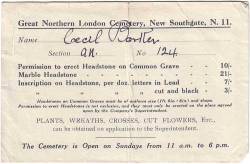 Great Northern London Cemetery, New Southgate, N. 11.
Name Cecil Barker
Section an. No 124
Permission to erect Headstone on Common Grave - 10/-
Marble Headstone - - - - 21/-
Inscription on Headstone, per doz. letters in Lead - 7/-
" " " " cut and black - 3/-
Headstones on Common Graves must be of uniform size
Permission to erect Headstone is not exclusive, and they must only be
used by the Company's Superintendent.
PLANTS, WREATHS, CROSSES, CUT FLOWERS, Etc.,
can be obtained on application to the Superintendent.
The Cemetery is Open on Sundays from 11 a.m. to 6 p.m.